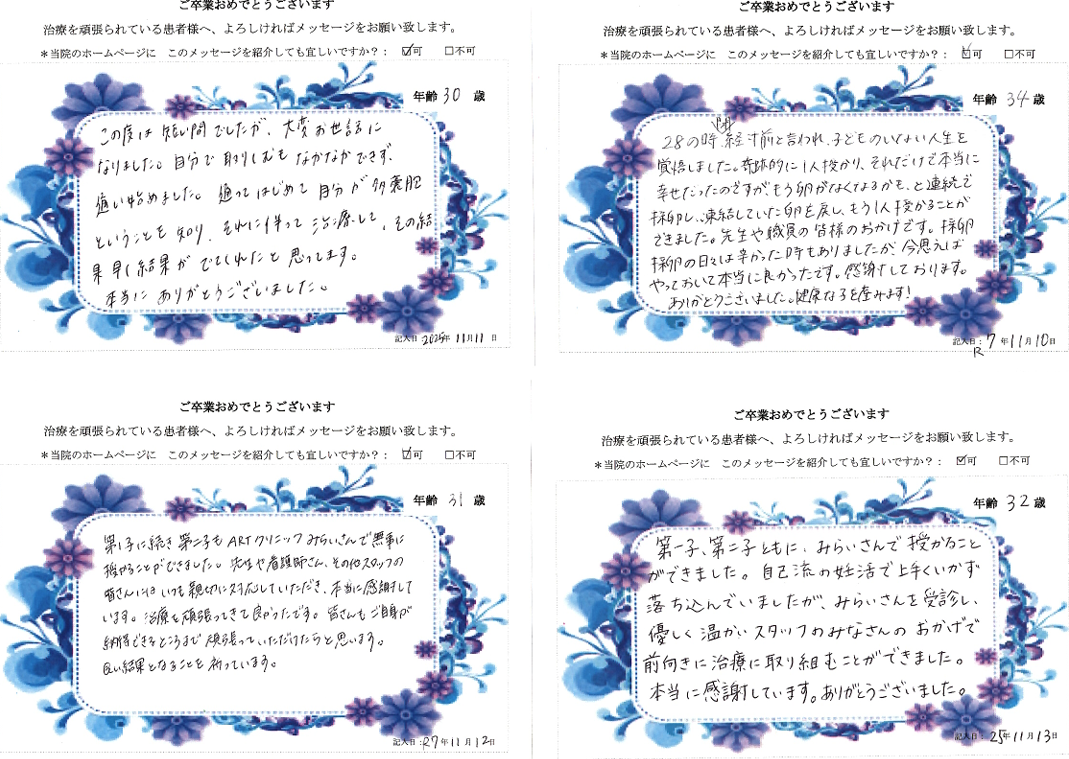 ご卒業おめでとうございます
治療を頑張られている患者様へ、よろしければメッセージをお願い致します。
＊当院のホームページに　このメッセージを紹介しても宜しいですか？： ☑可 □不可
年齢 30 歳
この度は短い間でしたが、大変お世話に
なりました。自分で取りくむもなかなかできず、
通い始めました。通ってはじめて自分が多嚢胞
ということを知り、それに伴って治療して、その結
果早く結果がでてくれたと思ってます。
本当にありがとうございました。
記入日：2025年 11月 11日
ご卒業おめでとうございます
治療を頑張られている患者様へ、よろしければメッセージをお願い致します。
＊当院のホームページに　このメッセージを紹介しても宜しいですか？： ☑可 □不可
年齢 34 歳
28の時、閉経寸前と言われ、子どものいない人生を
覚悟しました。奇跡的に1人授かり、それだけで本当に
幸せだったのですが、もう卵がなくなるかも、と連続で
採卵し、凍結していた卵を戻し、もう1人授かることが
できました。先生や職員の皆様のおかげです。採卵
採卵の日々は辛かった時もありましたが、今思えば
やっておいて本当に良かったです。感謝しております。
ありがとうございました。健康な子を産みます！
記入日：R7年 11月 10日
ご卒業おめでとうございます
治療を頑張られている患者様へ、よろしければメッセージをお願い致します。
＊当院のホームページに　このメッセージを紹介しても宜しいですか？： ☑可 □不可
年齢 31 歳
第1子に続き第二子もARTクリニックみらいさんで無事に
授かることができました。先生や看護師さん、その他スタッフの
皆さんにはいつも親切に対応していただき、本当に感謝して
います。治療を頑張ってきて良かったです。皆さんもご自身が
納得できるところまで頑張っていただけたらと思います。
良い結果となることを祈っています。
記入日：27年 11月 12日
ご卒業おめでとうございます
治療を頑張られている患者様へ、よろしければメッセージをお願い致します。
＊当院のホームページに　このメッセージを紹介しても宜しいですか？： ☑可 □不可
年齢 32 歳
第一子、第二子ともに、みらいさんで授かること
ができました。自己流の妊活で上手くいかず
落ち込んでいましたが、みらいさんを受診し、
優しく温かいスタッフのみなさんのおかげで
前向きに治療に取り組むことができました。
本当に感謝しています。ありがとうございました。
記入日：25年 11月 13日